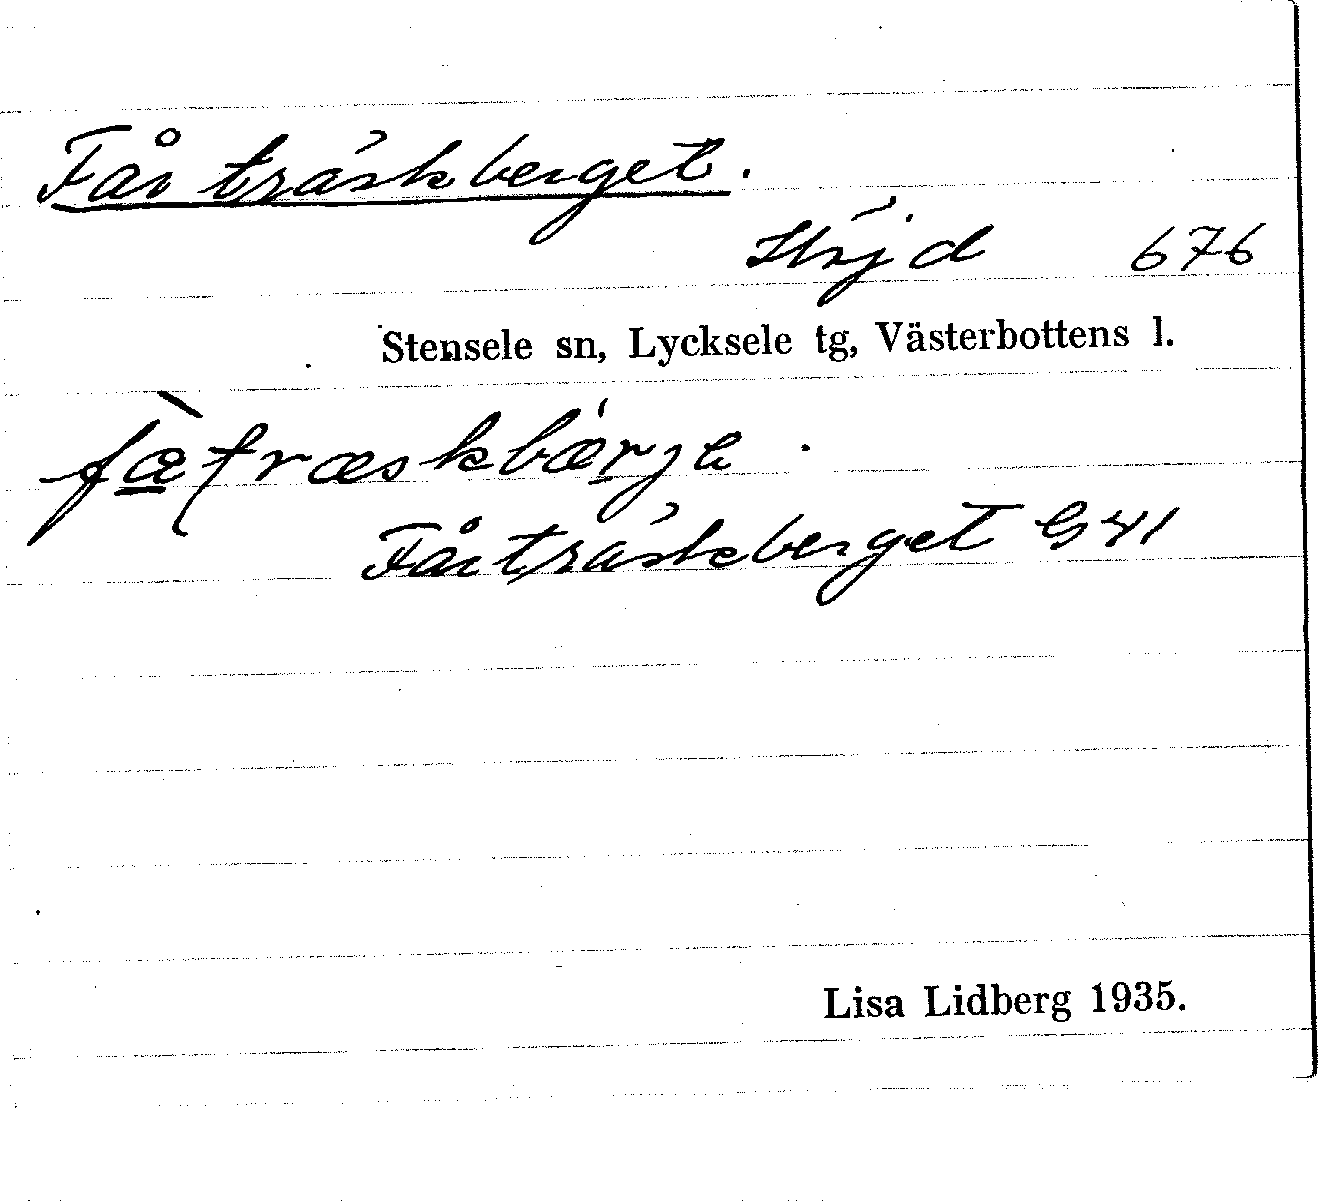 Fårträskberget.
Höjd 676
Stensele sn, Lycksele tg, Västerbottens l.
Fårträskberget G 41
Lisa Lidberg 1935.